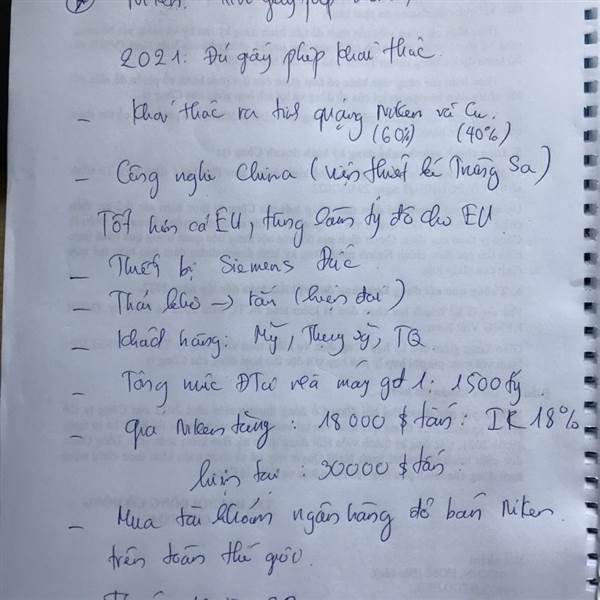 Niken:
2021: Đủ giấy phép khai thác
- Khai thác ra tinh quặng Niken và Cu.
(60%) (40%)
- Công nghệ China (viện thiết kế Trường Sa)
Tốt hơn cả EU, từng làm tỷ đô cho EU
- Thiết bị Siemens Đức
- Thái khô → tấn (hiện đại)
- Khách hàng: Mỹ, Thụy Sỹ, TQ
- Tổng mức ĐTư nhà máy gđ 1: 1500 tỷ
- Giá Niken tăng: 18000 $ tấn: IR 18%
hiện tại: 30000 $ tấn
- Mua tài khoản ngân hàng để bán Niken
trên toàn thế giới.